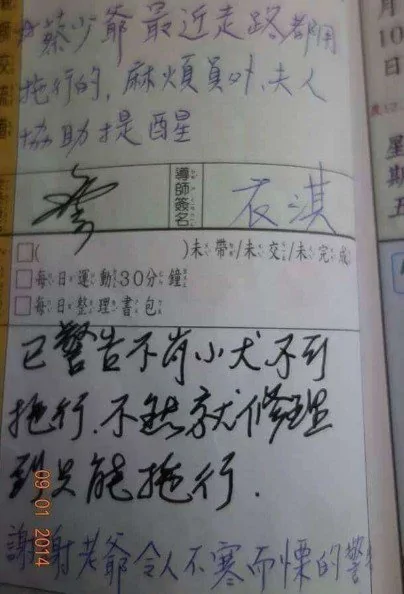 蔡少爺最近走路都用
拖行的, 麻煩員外、夫人
協助提醒
導師簽名
衣淇
□( )未帶/未交/未完成
□每日運動30分鐘
□每日整理書包
已警告不肖小犬不到
拖行.不然就修理
到只能拖行.
謝謝老爺令人不寒而慄的警
月
10
日
星
期
五
09 01 2014